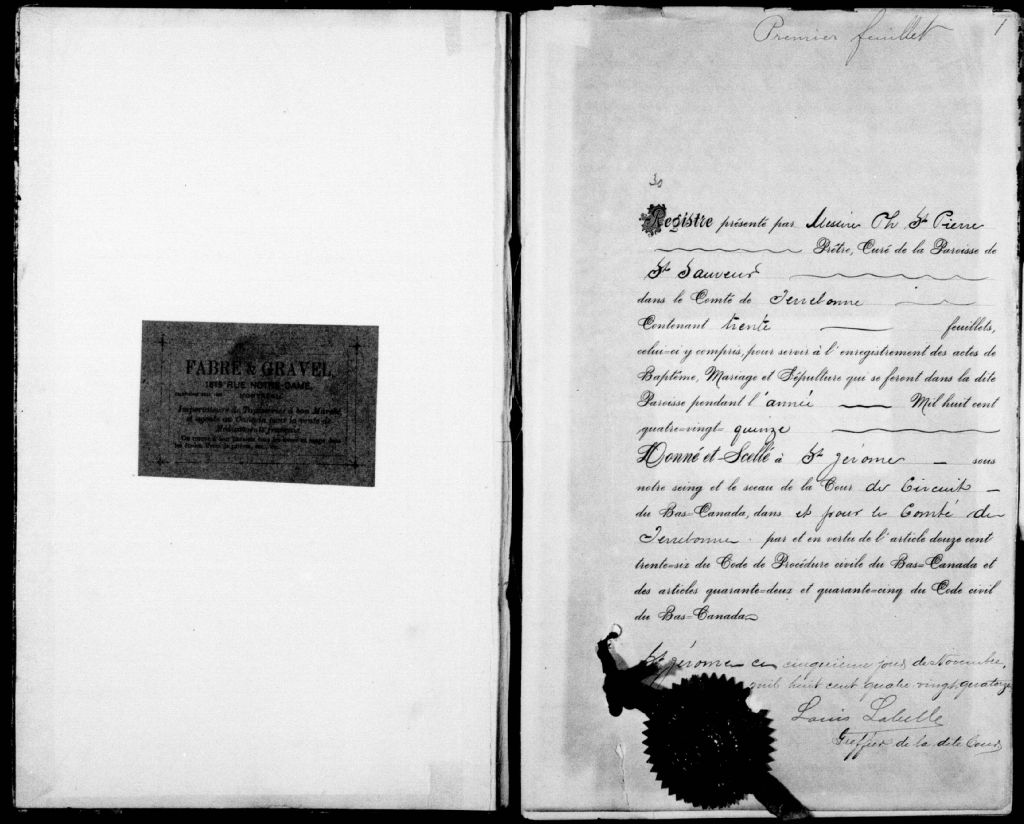 FABRE & GRAVEL,
1619 RUE NOTRE-DAME,
MONTREAL
Importateurs de Tapisseries à bon Marché,
et agents au Canada pour la vente de
Premier feuillet 1
30
Registre présenté par Messire Th St Pierre
Prêtre, Curé de la Paroisse de
St Sauveur
dans le Comté de Terrebonne
Contenant trente feuillets,
celui-ci y compris, pour servir à l'enregistrement des actes de
Baptême, Mariage et Sépulture qui se feront dans la dite
Paroisse pendant l'année Mil huit cent
quatre-vingt- quinze
Donné et Scellé à St Jérome sous
notre seing et le sceau de la Cour de Circuit
du Bas-Canada, dans et pour le Comté de
Terrebonne par et en vertu de l'article douze cent
trente-six du Code de Procédure civile du Bas-Canada et
des articles quarante-deux et quarante-cinq du Code civil
du Bas-Canada
St Jérome ce cinquième jour de Novembre,
mil huit cent quatre-vingt-quatorze
Louis Labelle
Greffier de la dite Cour